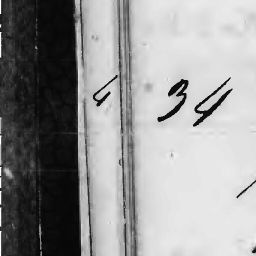 4 34